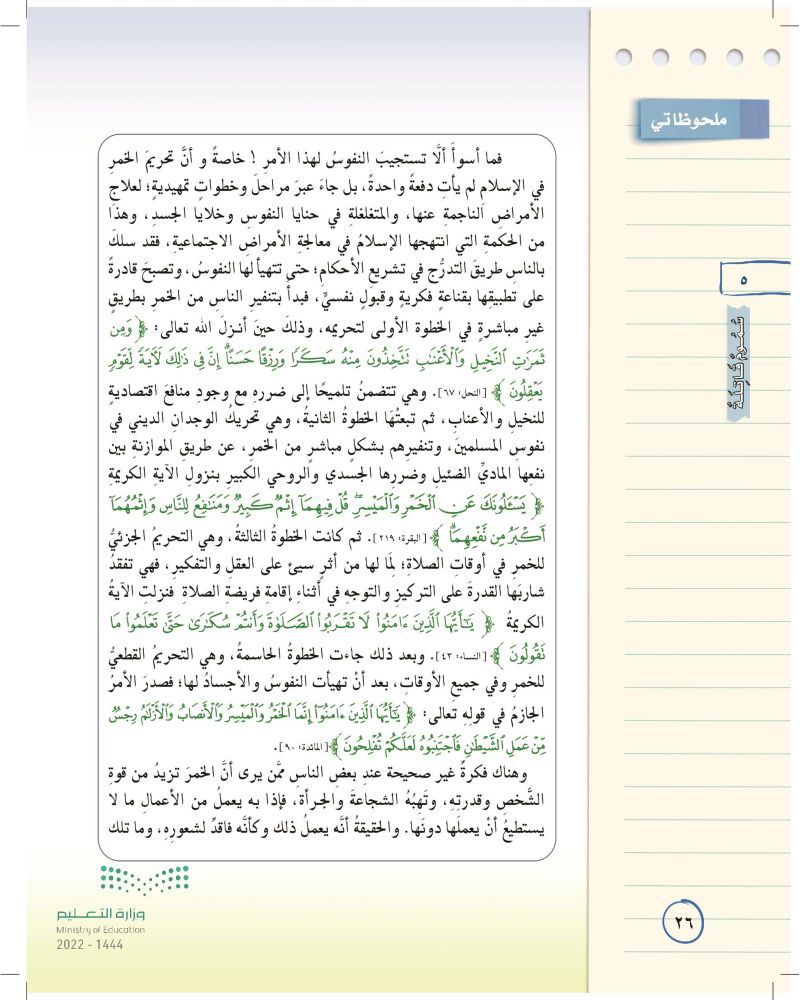 ملحوظاتي
٥
سُمُومٌ قَاتِلَةٌ
فما أسوأَ ألَّا تستجيبَ النفوسُ لهذا الأمرِ ! خاصةً و أنَّ تحريمَ الخمرِ
في الإسلامِ لم يأتِ دفعةً واحدةً، بل جاءَ عبرَ مراحلَ وخطواتٍ تمهيديةٍ؛ لعلاجِ
الأمراضِ الناجمةِ عنها، والمتغلغلةِ في حنايا النفوسِ وخلايا الجسدِ، وهذا
من الحكمةِ التي انتهجها الإسلامُ في معالجةِ الأمراضِ الاجتماعيةِ، فقد سلكَ
بالناسِ طريقَ التدرُّجِ في تشريعِ الأحكامِ؛ حتى تتهيأَ لها النفوسُ، وتصبحَ قادرةً
على تطبيقِها بقناعةٍ فكريةٍ وقبولٍ نفسيٍّ، فبدأَ بتنفيرِ الناسِ من الخمرِ بطريقٍ
غيرِ مباشرةٍ في الخطوةِ الأولى لتحريمِه، وذلكَ حينَ أنـزلَ الله تعالى: ﴿ وَمِن
ثَمَرَٰتِ ٱلنَّخِيلِ وَٱلْأَعْنَٰبِ تَتَّخِذُونَ مِنْهُ سَكَرًا وَرِزْقًا حَسَنًا ۗ إِنَّ فِي ذَٰلِكَ لَآيَةً لِّقَوْمٍ
يَعْقِلُونَ ﴾ [النحل: ٦٧]. وهي تتضمنُ تلميحًا إلى ضررِهِ مع وجودِ منافعَ اقتصاديةٍ
للنخيلِ والأعنابِ، ثم تبعتْهَا الخطوةُ الثانيةُ، وهي تحريكُ الوجدانِ الديني في
نفوسِ المسلمينَ، وتنفيرهم بشكلٍ مباشرٍ من الخمرِ، عن طريقِ الموازنةِ بين
نفعها الماديِّ الضئيلِ وضررِها الجسدي والروحي الكبيرِ بنزولِ الآيةِ الكريمةِ
﴿ يَسْـَٔلُونَكَ عَنِ ٱلْخَمْرِ وَٱلْمَيْسِرِ ۖ قُلْ فِيهِمَآ إِثْمٌ كَبِيرٌ وَمَنَٰفِعُ لِلنَّاسِ وَإِثْمُهُمَآ
أَكْبَرُ مِن نَّفْعِهِمَا ۗ ﴾ [البقرة: ٢١٩]. ثم كانت الخطوةُ الثالثةُ، وهي التحريمُ الجزئيُّ
للخمرِ في أوقاتِ الصلاةِ؛ لِمَا لها من أثرٍ سيئٍ على العقلِ والتفكيرِ، فهي تفقدُ
شاربَها القدرةَ على التركيزِ والتوجهِ في أثناءِ إقامةِ فريضةِ الصلاةِ فنزلتِ الآيةُ
الكريمةُ ﴿ يَٰٓأَيُّهَا ٱلَّذِينَ ءَامَنُوا۟ لَا تَقْرَبُوا۟ ٱلصَّلَوٰةَ وَأَنتُمْ سُكَٰرَىٰ حَتَّىٰ تَعْلَمُوا۟ مَا
تَقُولُونَ ﴾ [النساء: ٤٣]. وبعد ذلك جاءت الخطوةُ الحاسمةُ، وهي التحريمُ القطعيُّ
للخمرِ وفي جميعِ الأوقاتِ، بعد أنْ تهيأت النفوسُ والأجسادُ لها؛ فصدرَ الأمرُ
الجازمُ في قولِهِ تعالى: ﴿ يَٰٓأَيُّهَا ٱلَّذِينَ ءَامَنُوٓا۟ إِنَّمَا ٱلْخَمْرُ وَٱلْمَيْسِرُ وَٱلْأَنصَابُ وَٱلْأَزْلَٰمُ رِجْسٌ
مِّنْ عَمَلِ ٱلشَّيْطَٰنِ فَٱجْتَنِبُوهُ لَعَلَّكُمْ تُفْلِحُونَ ﴾ [المائدة: ٩٠].
وهناك فكرةٌ غير صحيحة عند بعضِ الناسِ ممَّن يرى أنَّ الخمرَ تزيدُ من قوةِ
الشَّخصِ وقدرتِه، وتَهِبُهُ الشجاعةَ والجرأةَ، فإذا به يعملُ من الأعمالِ ما لا
يستطيعُ أنْ يعملَها دونَها. والحقيقةُ أنَّه يعملُ ذلك وكأنَّه فاقدٌ لشعورِهِ، وما تلك
وزارة التعـليم
Ministry of Education
2022 - 1444
٢٦